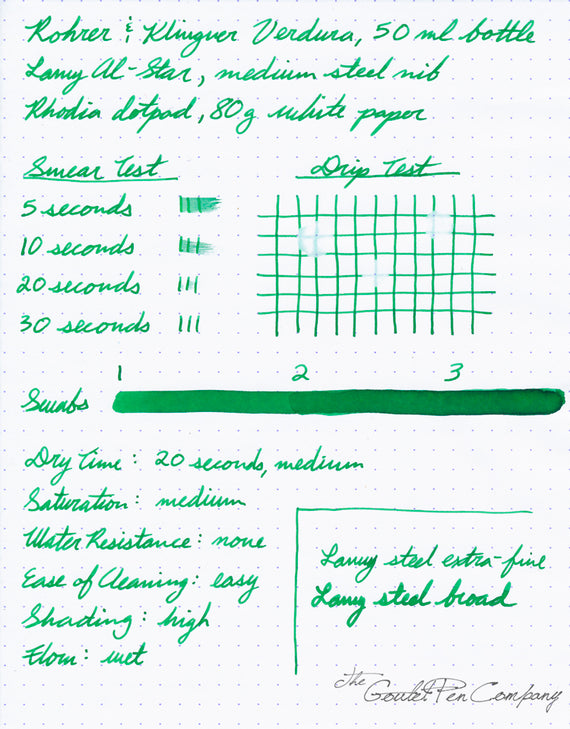 Rohrer & Klingner Verdura, 50 ml bottle
Lamy Al-Star, medium steel nib
Rhodia dotpad, 80g white paper
Smear Test
Drip Test
5 seconds
10 seconds
20 seconds
30 seconds
1 2 3
Swabs
Dry Time: 20 seconds, medium
Saturation: medium
Water Resistance: none
Ease of Cleaning: easy
Shading: high
Flow: wet
Lamy steel extra-fine
Lamy steel broad
The Goulet Pen Company